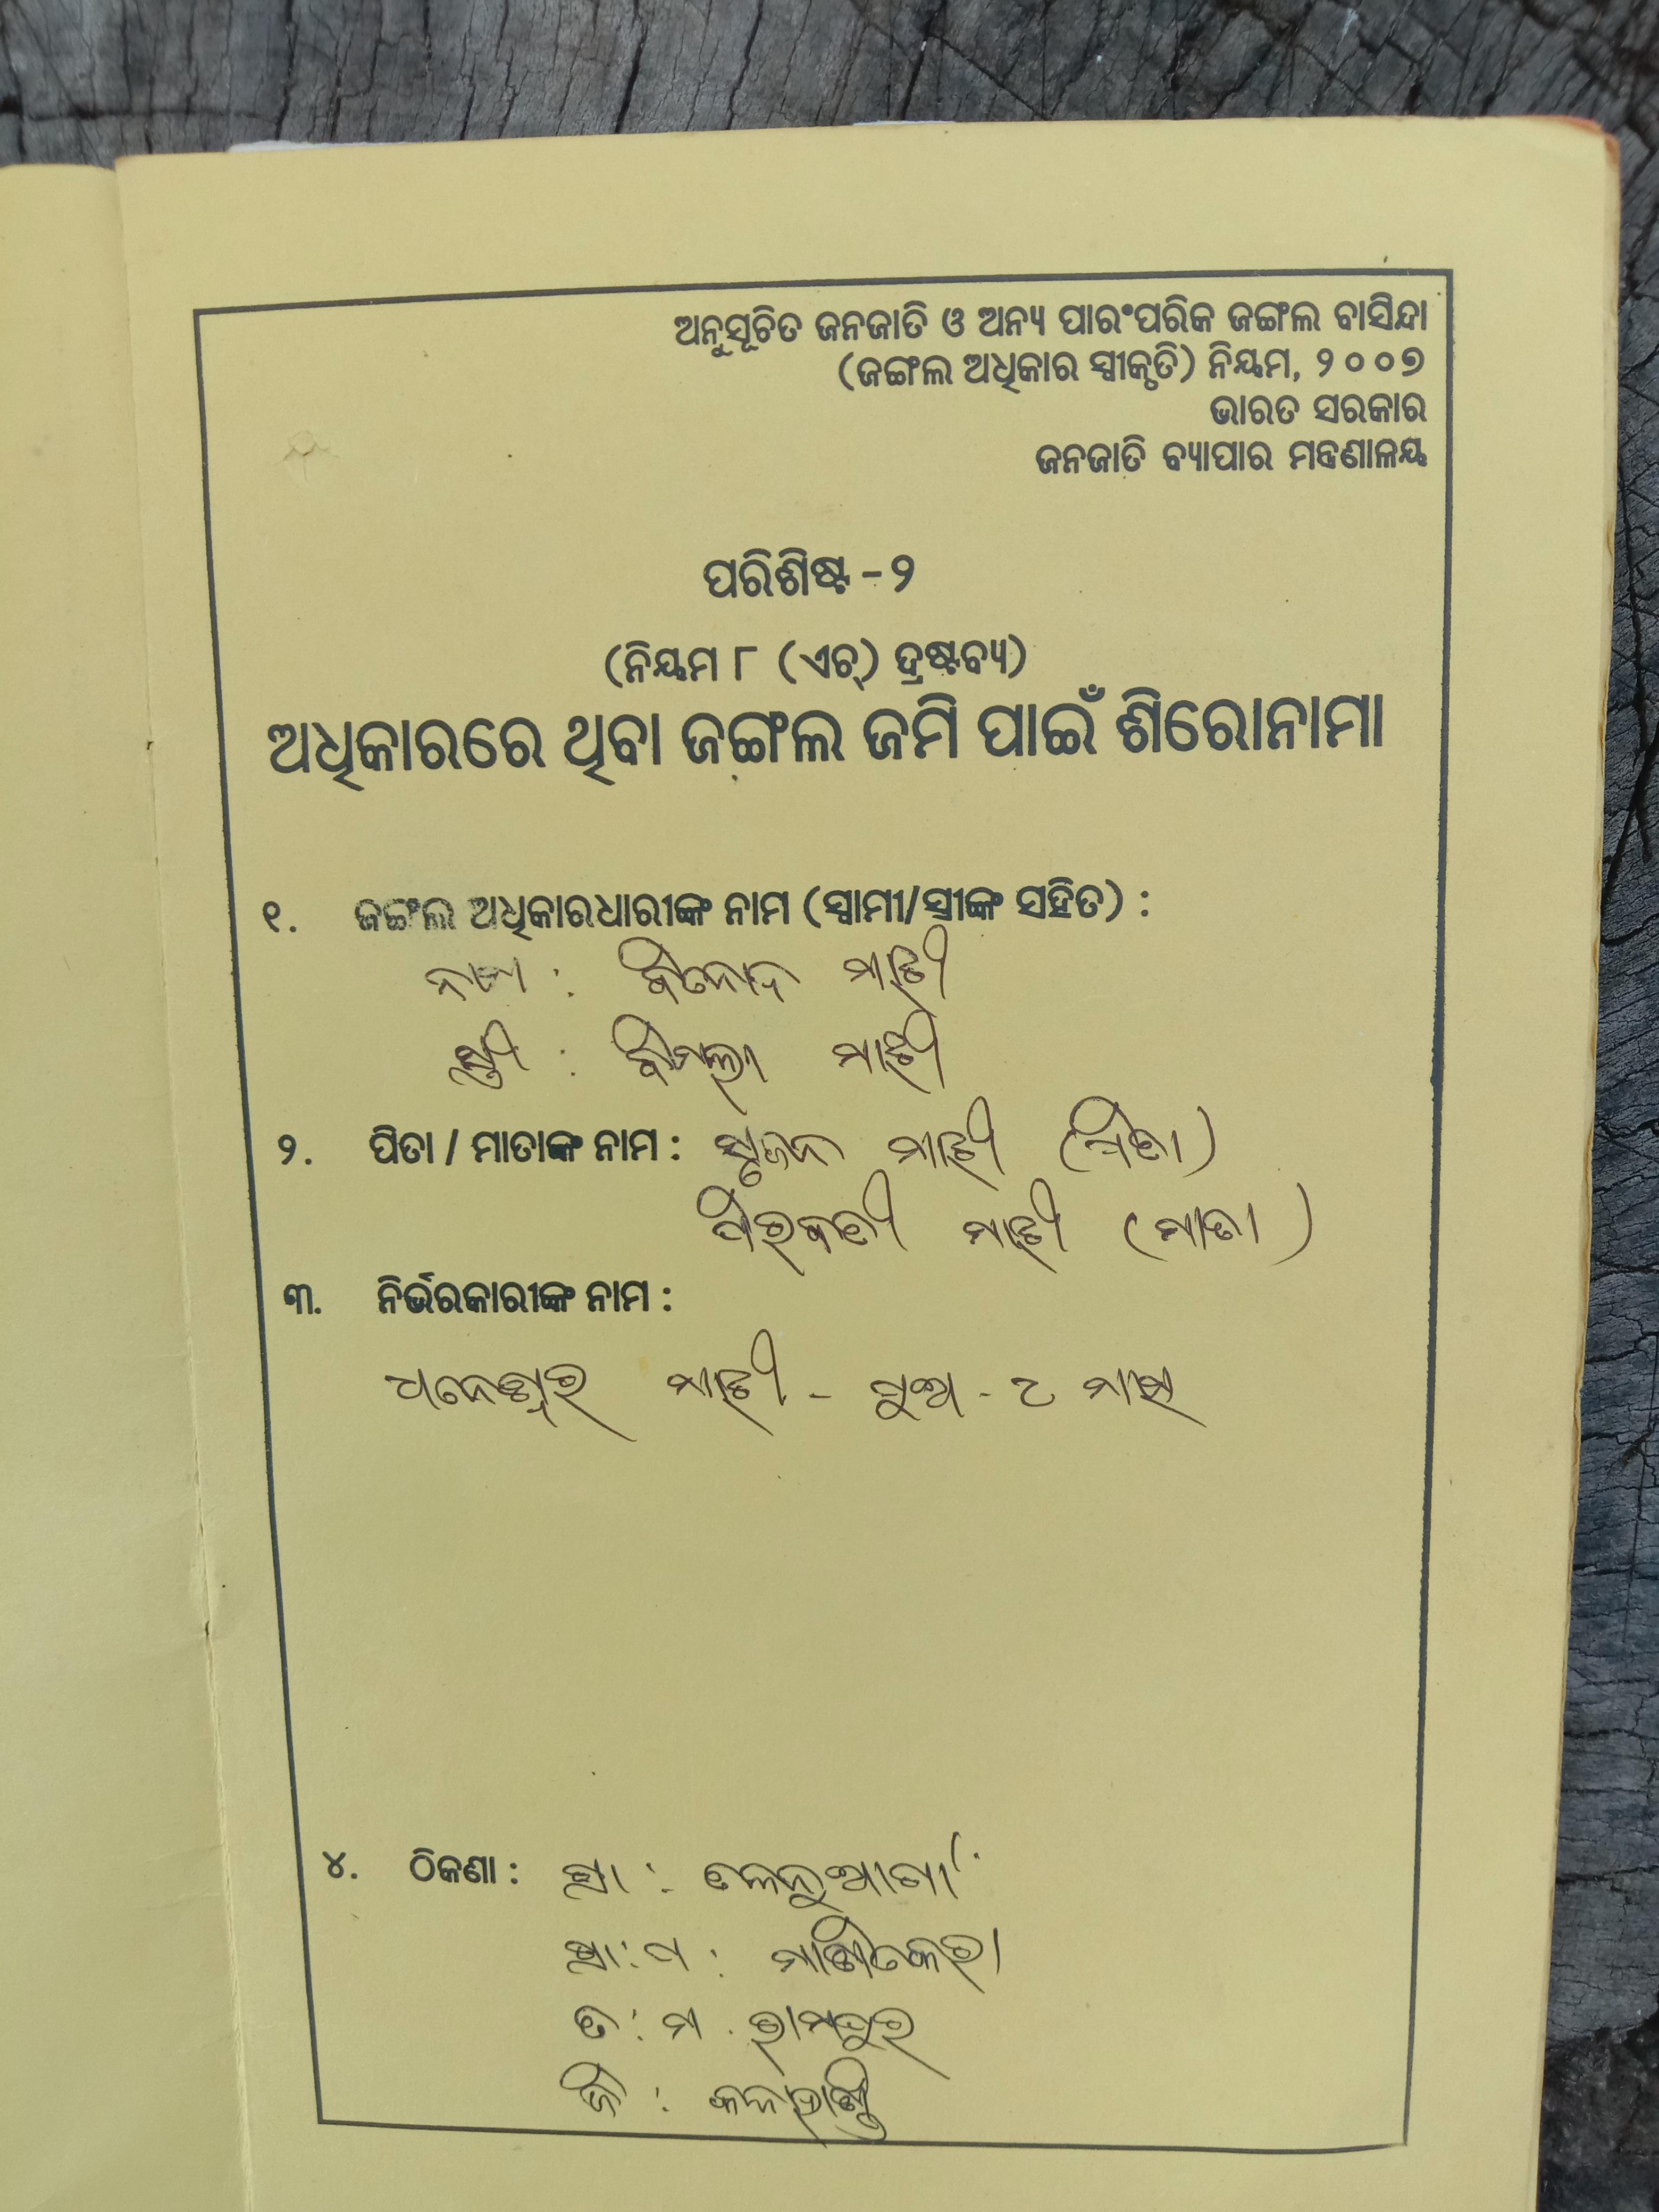 ଅନୁସୂଚିତ ଜନଜାତି ଓ ଅନ୍ୟ ପାରଂପରିକ ଜଙ୍ଗଲ ବାସିନ୍ଦା
(ଜଙ୍ଗଲ ଅଧିକାର ସ୍ୱୀକୃତି) ନିୟମ, ୨୦୦୭
ଭାରତ ସରକାର
ଜନଜାତି ବ୍ୟାପାର ମନ୍ତ୍ରଣାଳୟ
ପରିଶିଷ୍ଟ - ୨
(ନିୟମ ୮ (ଏଚ୍) ଦ୍ରଷ୍ଟବ୍ୟ)
ଅଧିକାରରେ ଥିବା ଜଙ୍ଗଲ ଜମି ପାଇଁ ଶିରୋନାମା
୧. ଜଙ୍ଗଲ ଅଧିକାରଧାରୀଙ୍କ ନାମ (ସ୍ୱାମୀ/ସ୍ତ୍ରୀଙ୍କ ସହିତ) :
ନାମ : ବିନୋଦ ମାଝୀ
ସ୍ତ୍ରୀ : ବିମଲା ମାଝୀ
୨. ପିତା / ମାତାଙ୍କ ନାମ : ମାଝୀ (ପିତା)
ମାଝୀ (ମାତା)
୩. ନିର୍ଭରକାରୀଙ୍କ ନାମ :
ଧନେଶ୍ୱର ମାଝୀ - ପୁଅ - ୯ ମାସ
୪. ଠିକଣା : ଗ୍ରା :
ଗ୍ରା : ପ :
ତ : ମ. ରାମପୁର
ଜି : କଳାହାଣ୍ଡି